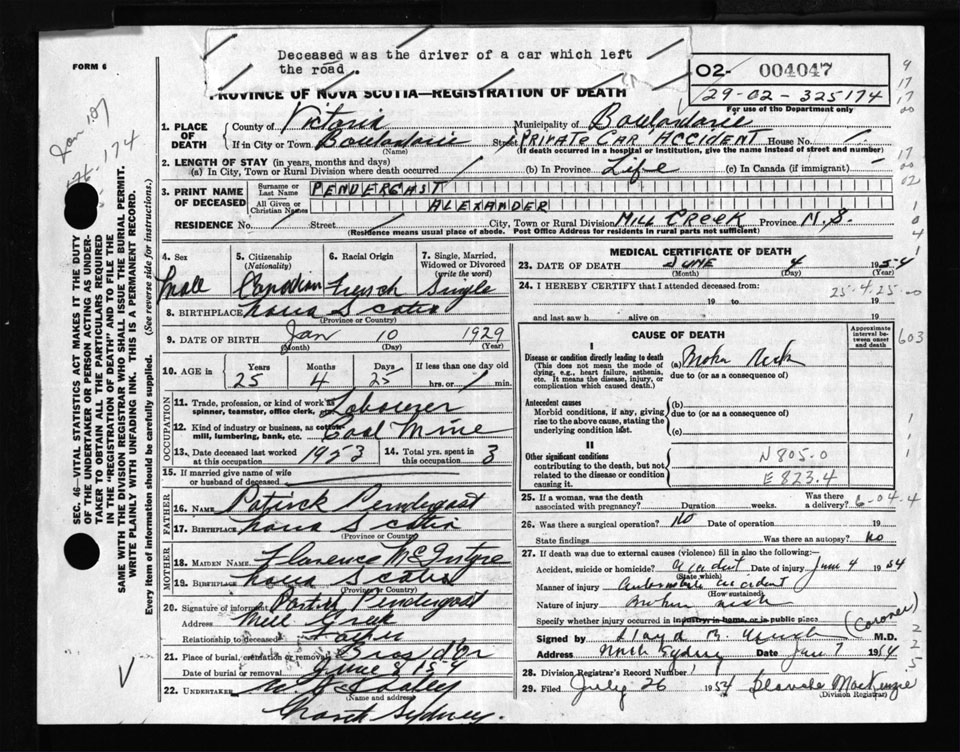 Deceased was the driver of a car which left
the road.
FORM 6
O2- 004047
29-02-325174
For use of the Department only
PROVINCE OF NOVA SCOTIA—REGISTRATION OF DEATH
Jan 107
174
1. PLACE OF DEATH
County of Victoria Municipality of Boularderie
If in City or Town Boularderie Street PRIVATE CAR ACCIDENT House No.
(Name) (If death occurred in a hospital or institution, give the name instead of street and number)
2. LENGTH OF STAY (in years, months and days)
(a) In City, Town or Rural Division where death occurred (b) In Province Life (c) In Canada (if immigrant) —
3. PRINT NAME OF DECEASED
Surname or Last Name PENDERGAST
All Given or Christian Names ALEXANDER
RESIDENCE No. Street City, Town or Rural Division MILL CREEK Province N.S.
(Residence means usual place of abode. Post Office Address for residents in rural parts not sufficient)
SEC. 46—VITAL STATISTICS ACT MAKES IT THE DUTY
OF THE UNDERTAKER OR PERSON ACTING AS UNDER-
TAKER TO OBTAIN ALL THE PARTICULARS REQUIRED
IN THE "REGISTRATION OF DEATH" AND TO FILE THE
SAME WITH THE DIVISION REGISTRAR WHO SHALL ISSUE THE BURIAL PERMIT.
WRITE PLAINLY WITH UNFADING INK. THIS IS A PERMANENT RECORD.
Every item of information should be carefully supplied. (See reverse side for instructions.)
4. Sex
Male
5. Citizenship
(Nationality)
Canadian
6. Racial Origin
French
7. Single, Married,
Widowed or Divorced
(write the word)
Single
8. BIRTHPLACE Nova Scotia
(Province or Country)
9. DATE OF BIRTH Jan 10 1929
(Month) (Day) (Year)
10. AGE in
Years Months Days If less than one day
25 4 25 hrs. or min.
OCCUPATION
11. Trade, profession, or kind of work as
spinner, teamster, office clerk, etc. Labourer
12. Kind of industry or business, as cotton-
mill, lumbering, bank, etc. Coal Mine
13. Date deceased last worked
at this occupation 1953
14. Total yrs. spent in
this occupation 3
15. If married give name of wife
or husband of deceased
FATHER
16. NAME Patrick Pendergast
17. BIRTHPLACE Nova Scotia
(Province or Country)
MOTHER
18. MAIDEN NAME Florence McIntyre
19. BIRTHPLACE Nova Scotia
(Province or Country)
20. Signature of informant Pendergast
Address Mill Creek
Relationship to deceased Father
21. Place of burial, cremation or removal Bras d'Or
Date of burial or removal June 8 1954
22. UNDERTAKER
(Name and address)
North Sydney.
MEDICAL CERTIFICATE OF DEATH
23. DATE OF DEATH JUNE 4 1954
(Month) (Day) (Year)
24. I HEREBY CERTIFY that I attended deceased from
25-4-25
19 to 19
and last saw h alive on 19
CAUSE OF DEATH
Approximate
interval
between onset
and death
I
Disease or condition directly leading to death
(This does not mean the mode of
dying, e.g., heart failure, asthenia,
etc. It means the disease, injury, or
complication which caused death.)
(a) Broken Neck
due to (or as a consequence of)
Antecedent causes
Morbid conditions, if any, giving
rise to the above cause, stating the
underlying condition last.
(b)
due to (or as a consequence of)
(c)
II
Other significant conditions
contributing to the death, but not
related to the disease or condition
causing it.
N805.0
E823.4
25. If a woman, was the death
associated with pregnancy? Duration weeks. Was there
a delivery? 6-04-4
26. Was there a surgical operation? No Date of operation 19
State findings Was there an autopsy? No
27. If death was due to external causes (violence) fill in also the following:—
Accident, suicide or homicide? Accident Date of injury June 4 1954
(State which)
Manner of injury Automobile accident
(How sustained)
Nature of injury Broken neck
Specify whether injury occurred in industry, in home, or in public place
(Coroner)
Signed by Lloyd M.D.
Address North Sydney Date June 7 1954
28. Division Registrar's Record Number 1
29. Filed July 26 1954 MacKenzie
(Division Registrar)
603